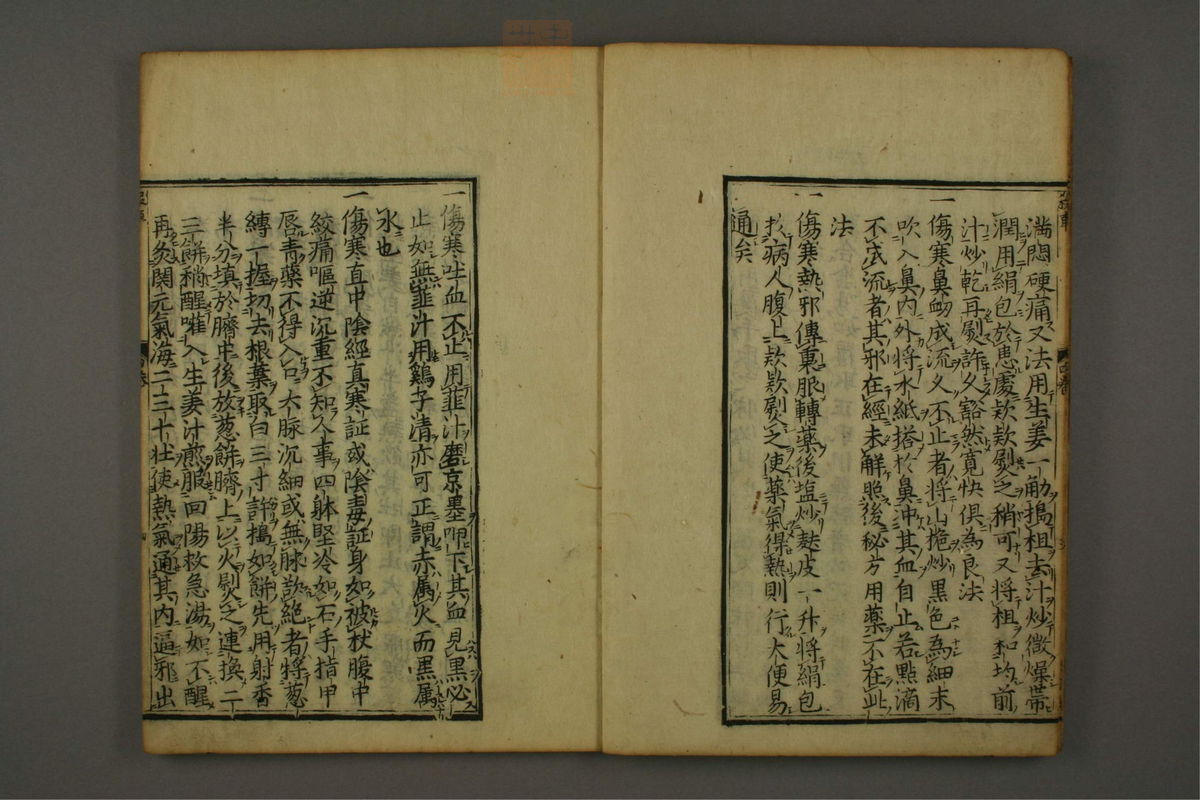 滿悶硬痛又法用生姜一觔搗粗去汁炒微燥帶
潤用絹包於患處欵欵熨之稍可又將粗和均前
汁炒乾再熨許久豁然寛快俱為良法
一傷寒鼻衂成流久不止者將山梔炒黒色為細末
吹入鼻内外將水紙搭於鼻冲其血自止若點滴
不成流者其邪在經未解照後秘方用藥不在此
法
一傷寒熱邪傳裏服轉藥後塩炒麩皮一升將絹包
於病人腹上欵欵熨之使藥氣得熱則行大便易
通矣
一傷寒吐血不止用韮汁磨京墨呷下其血見黒必
止如無韮汁用鷄子清亦可正謂赤属火而黒属
水也
一傷寒直中陰經真寒証或陰毒証身如被杖腹中
絞痛嘔逆沉重不知人事四躰堅冷如石手指甲
唇青藥不得入口六脉沉細或無脉欲絶者將葱
縳一握切去根葉取白三寸許搗如餅先用射香
半分填於臍中後放葱餅臍上以火熨之連換二
三餅稍醒嚾入生姜汁煎服回陽救急湯如不醒
再灸関元氣海二三十壮使熱氣通其内逼邪出